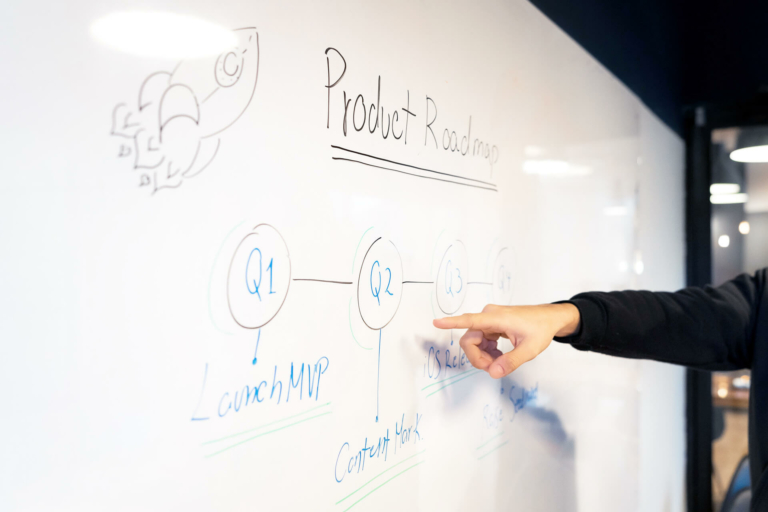 Product Roadmap
Q1
Q2
Q3
Q4
Launch MVP
Content Mark.
iOS Rele